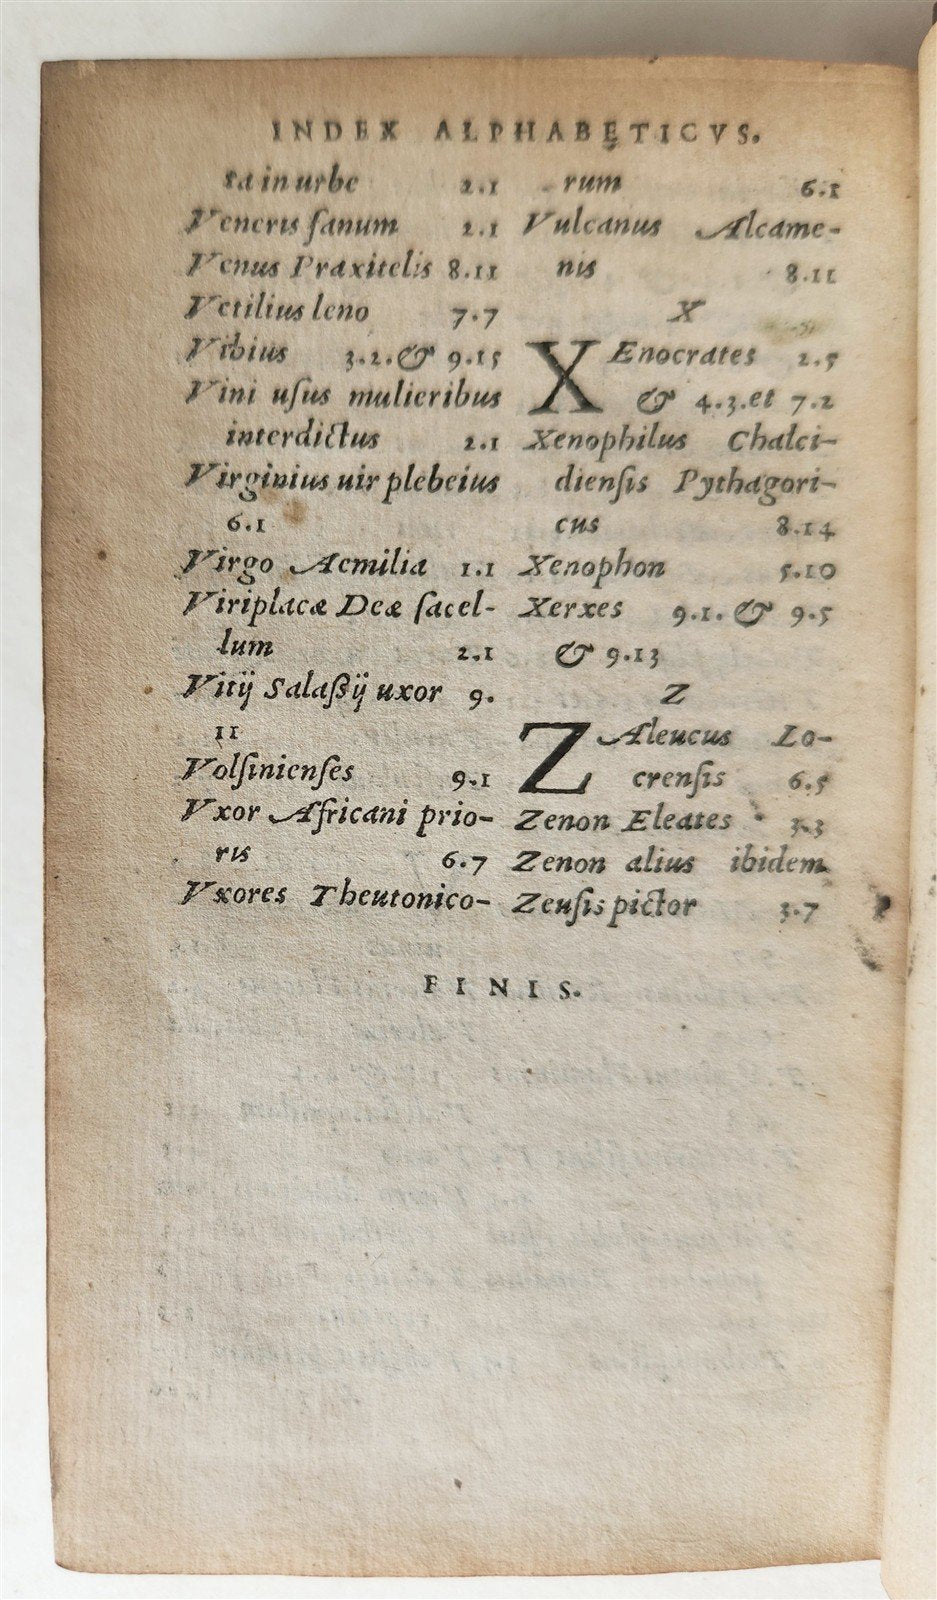 INDEX ALPHABETICVS.
ra in urbe 2.1
Veneris fanum 2.1
Venus Praxitelis 8.11
Vetilius leno 7.7
Vibius 3.2. & 9.15
Vini uſus mulieribus
interdictus 2.1
Virginius uir plebeius
6.1
Virgo Aemilia 1.1
Viriplacæ Deæ ſacel-
lum 2.1
Vitij Salaßij uxor 9.
11
Volſinienſes 9.1
Vxor Africani prio-
ris 6.7
Vxores Theutonico-
rum 6.1
Vulcanus Alcame-
nis 8.11
X
XEnocrates 2.5
& 4.3. et 7.2
Xenophilus Chalci-
dienſis Pythagori-
cus 8.14
Xenophon 5.10
Xerxes 9.1. & 9.5
& 9.13
Z
ZAleucus Lo-
crenſis 6.5
Zenon Eleates 3.3
Zenon alius ibidem
Zeuſis pictor 3.7
FINIS.